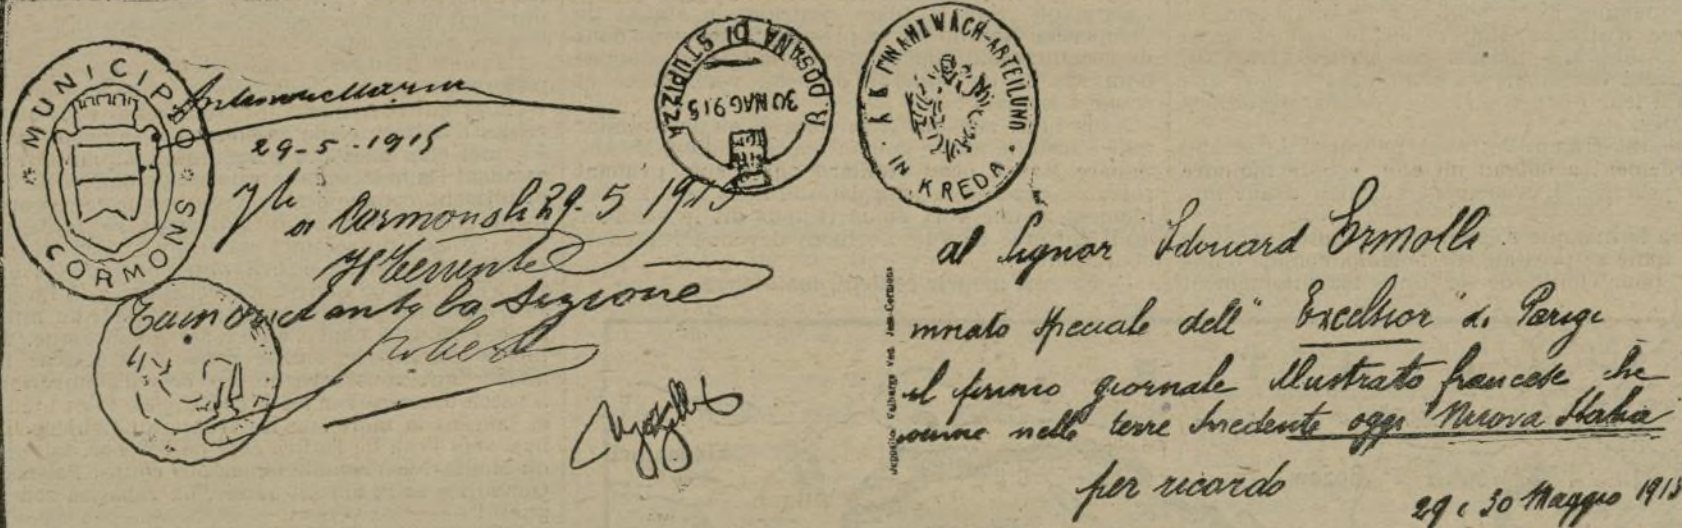 MUNICIPIO CORMONS
29-5-1915
Cormons li 29.5 1915
Il Tenente
Comandante la Sezione
R. DOGANA DI STUPIZZA
30 MAG 915
K. K. FINANZWACH-ABTEILUNG
IN KREDA
al Signor Edouard Ermolli
inviato speciale dell' "Excelsior" di Parigi
il primo giornale illustrato francese che
venne nelle terre irredente oggi "Nuova Italia
per ricordo
29 e 30 Maggio 1915